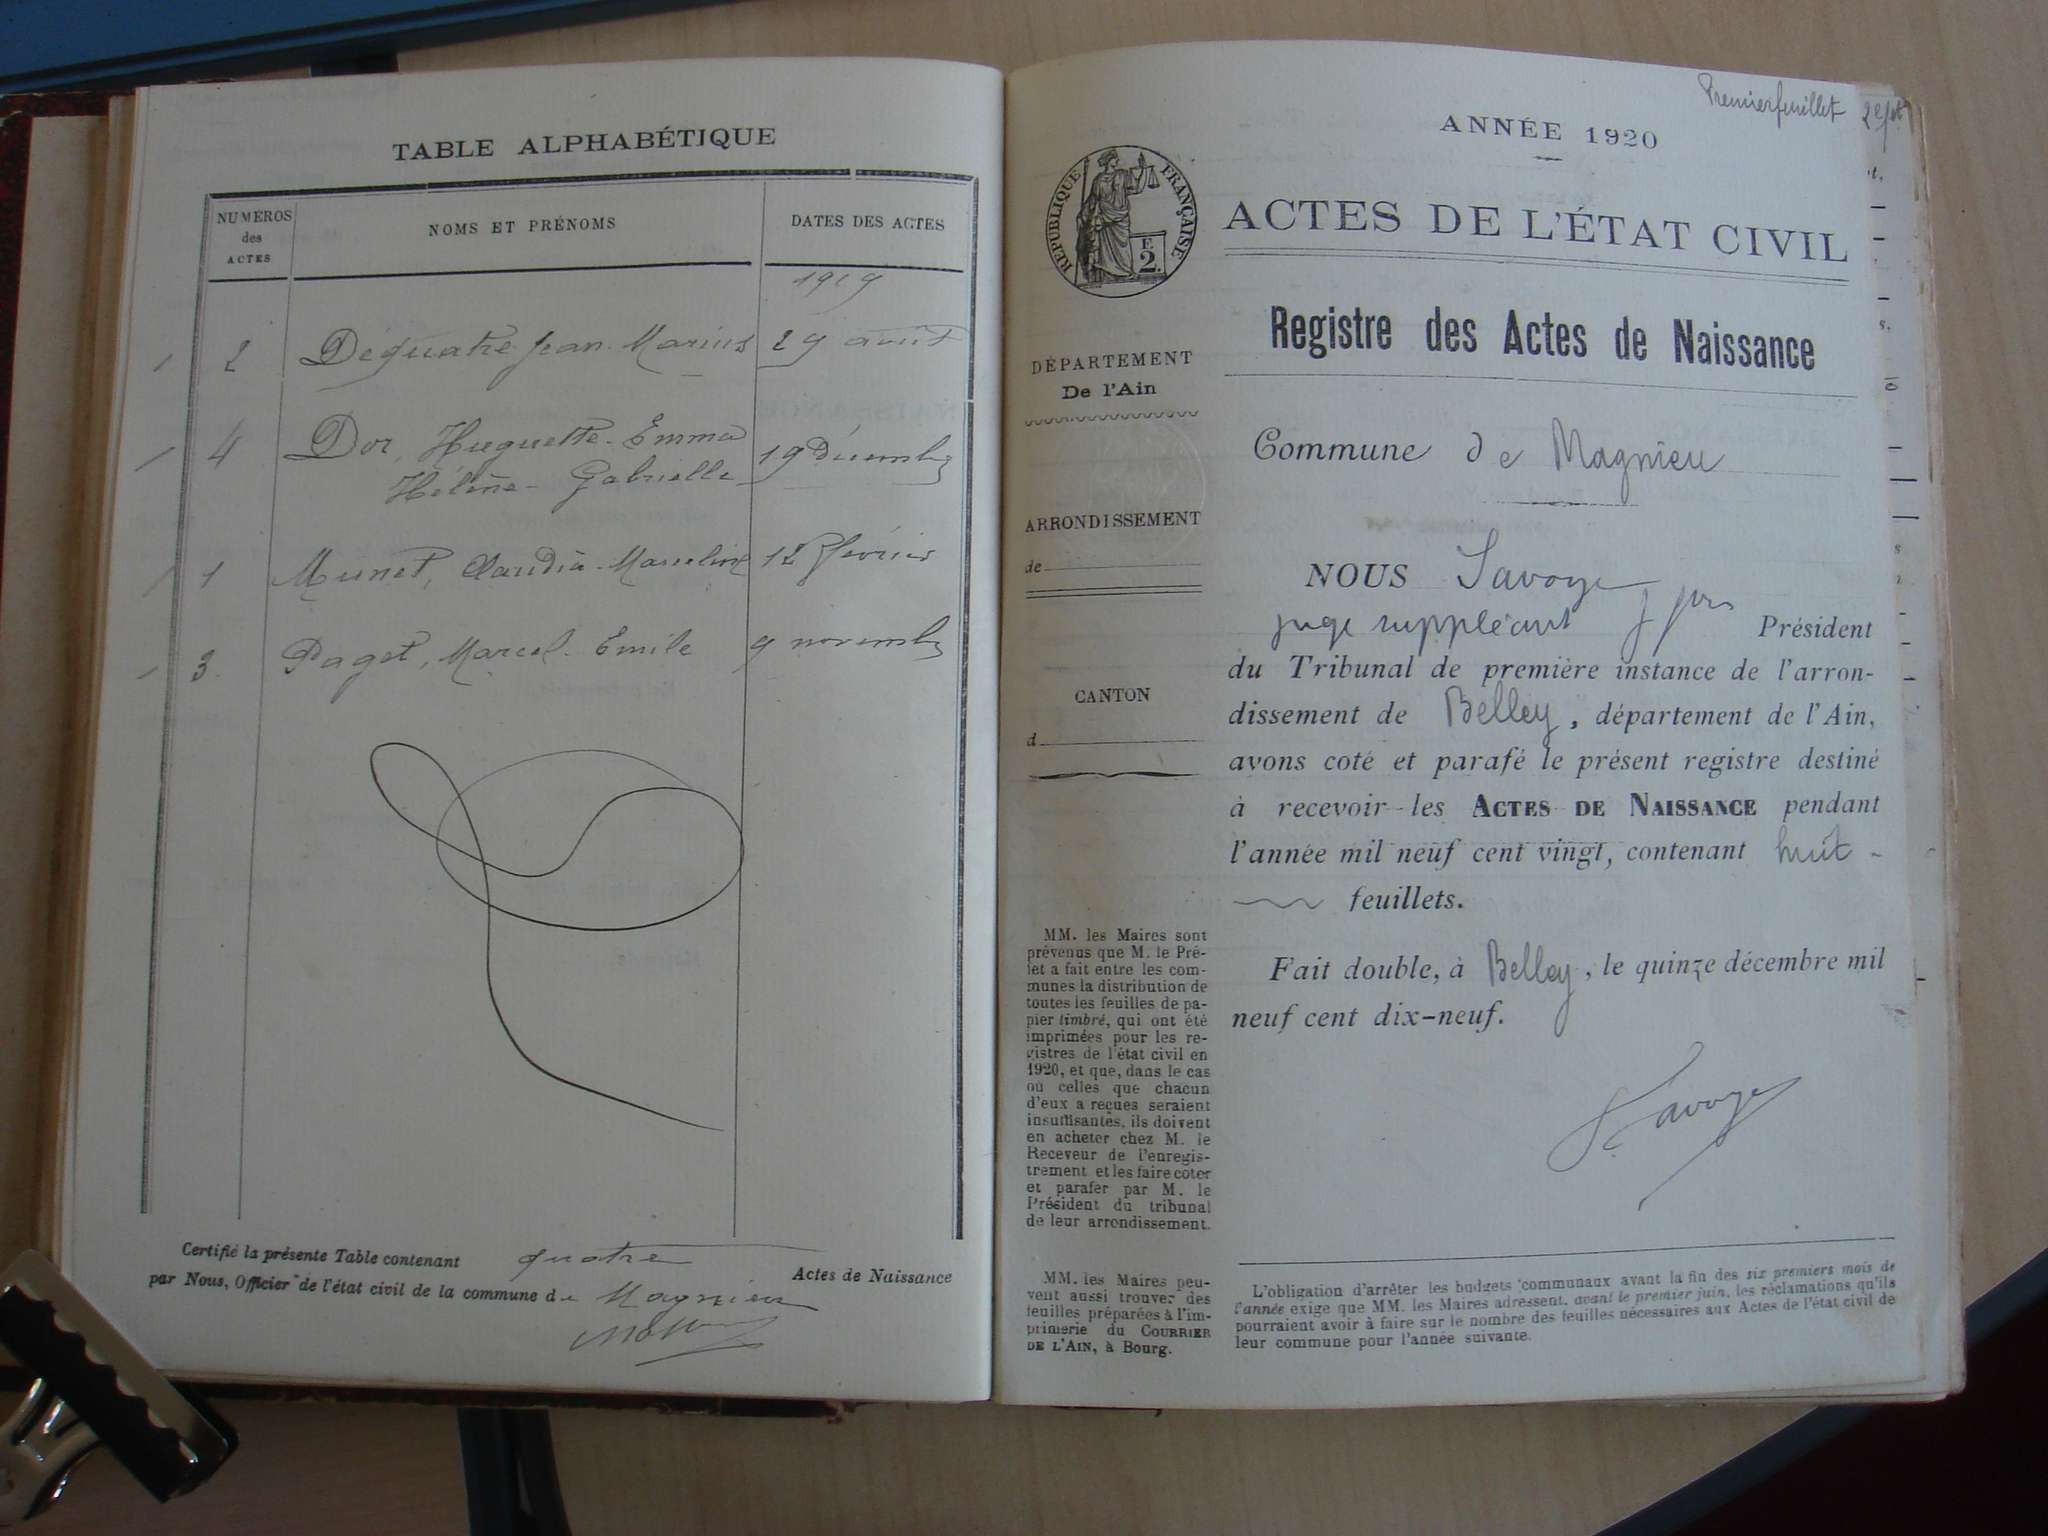 TABLE ALPHABÉTIQUE
NUMEROS
des
ACTES
NOMS ET PRÉNOMS
DATES DES ACTES
1919
2 Dequatre Jean Marius 29 août
4 Dor, Huguette Emma
Hélène Gabrielle 19 Décembre
1 Munet, Claudia Marceline 12 février
3 Paget, Marcel Emile 9 novembre
Certifié la présente Table contenant quatre Actes de Naissance
par Nous, Officier de l'état civil de la commune de Magnieu
Premier feuillet
ANNÉE 1920
RÉPUBLIQUE FRANÇAISE
F.
2.
ACTES DE L'ÉTAT CIVIL
Registre des Actes de Naissance
DÉPARTEMENT
De l'Ain
Commune de Magnieu
ARRONDISSEMENT
de
CANTON
d
NOUS Savoye
juge suppléant Président
du Tribunal de première instance de l'arron-
dissement de Belley, département de l'Ain,
avons coté et parafé le présent registre destiné
à recevoir les ACTES DE NAISSANCE pendant
l'année mil neuf cent vingt, contenant huit
feuillets.
Fait double, à Belley, le quinze décembre mil
neuf cent dix-neuf.
Savoye
MM. les Maires sont
prévenus que M. le Pré-
fet a fait entre les com-
munes la distribution de
toutes les feuilles de pa-
pier timbré, qui ont été
imprimées pour les re-
gistres de l'état civil en
1920, et que, dans le cas
où celles que chacun
d'eux a reçues seraient
insuffisantes, ils doivent
en acheter chez M. le
Receveur de l'enregis-
trement et les faire coter
et parafer par M. le
Président du tribunal
de leur arrondissement.
MM. les Maires peu-
vent aussi trouver des
feuilles préparées à l'im-
primerie du COURRIER
DE L'AIN, à Bourg.
L'obligation d'arrêter les budgets communaux avant la fin des six premiers mois de
l'année exige que MM. les Maires adressent, avant le premier juin, les réclamations qu'ils
pourraient avoir à faire sur le nombre des feuilles nécessaires aux Actes de l'état civil de
leur commune pour l'année suivante.